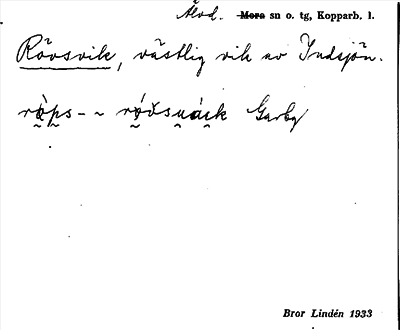 Älvd. ~~Mora~~ sn o. tg, Kopparb. l.
Rövsvik, västlig vik av Indsjön.
rö̀ps- ~ rövsvik Garby
Bror Lindén 1933